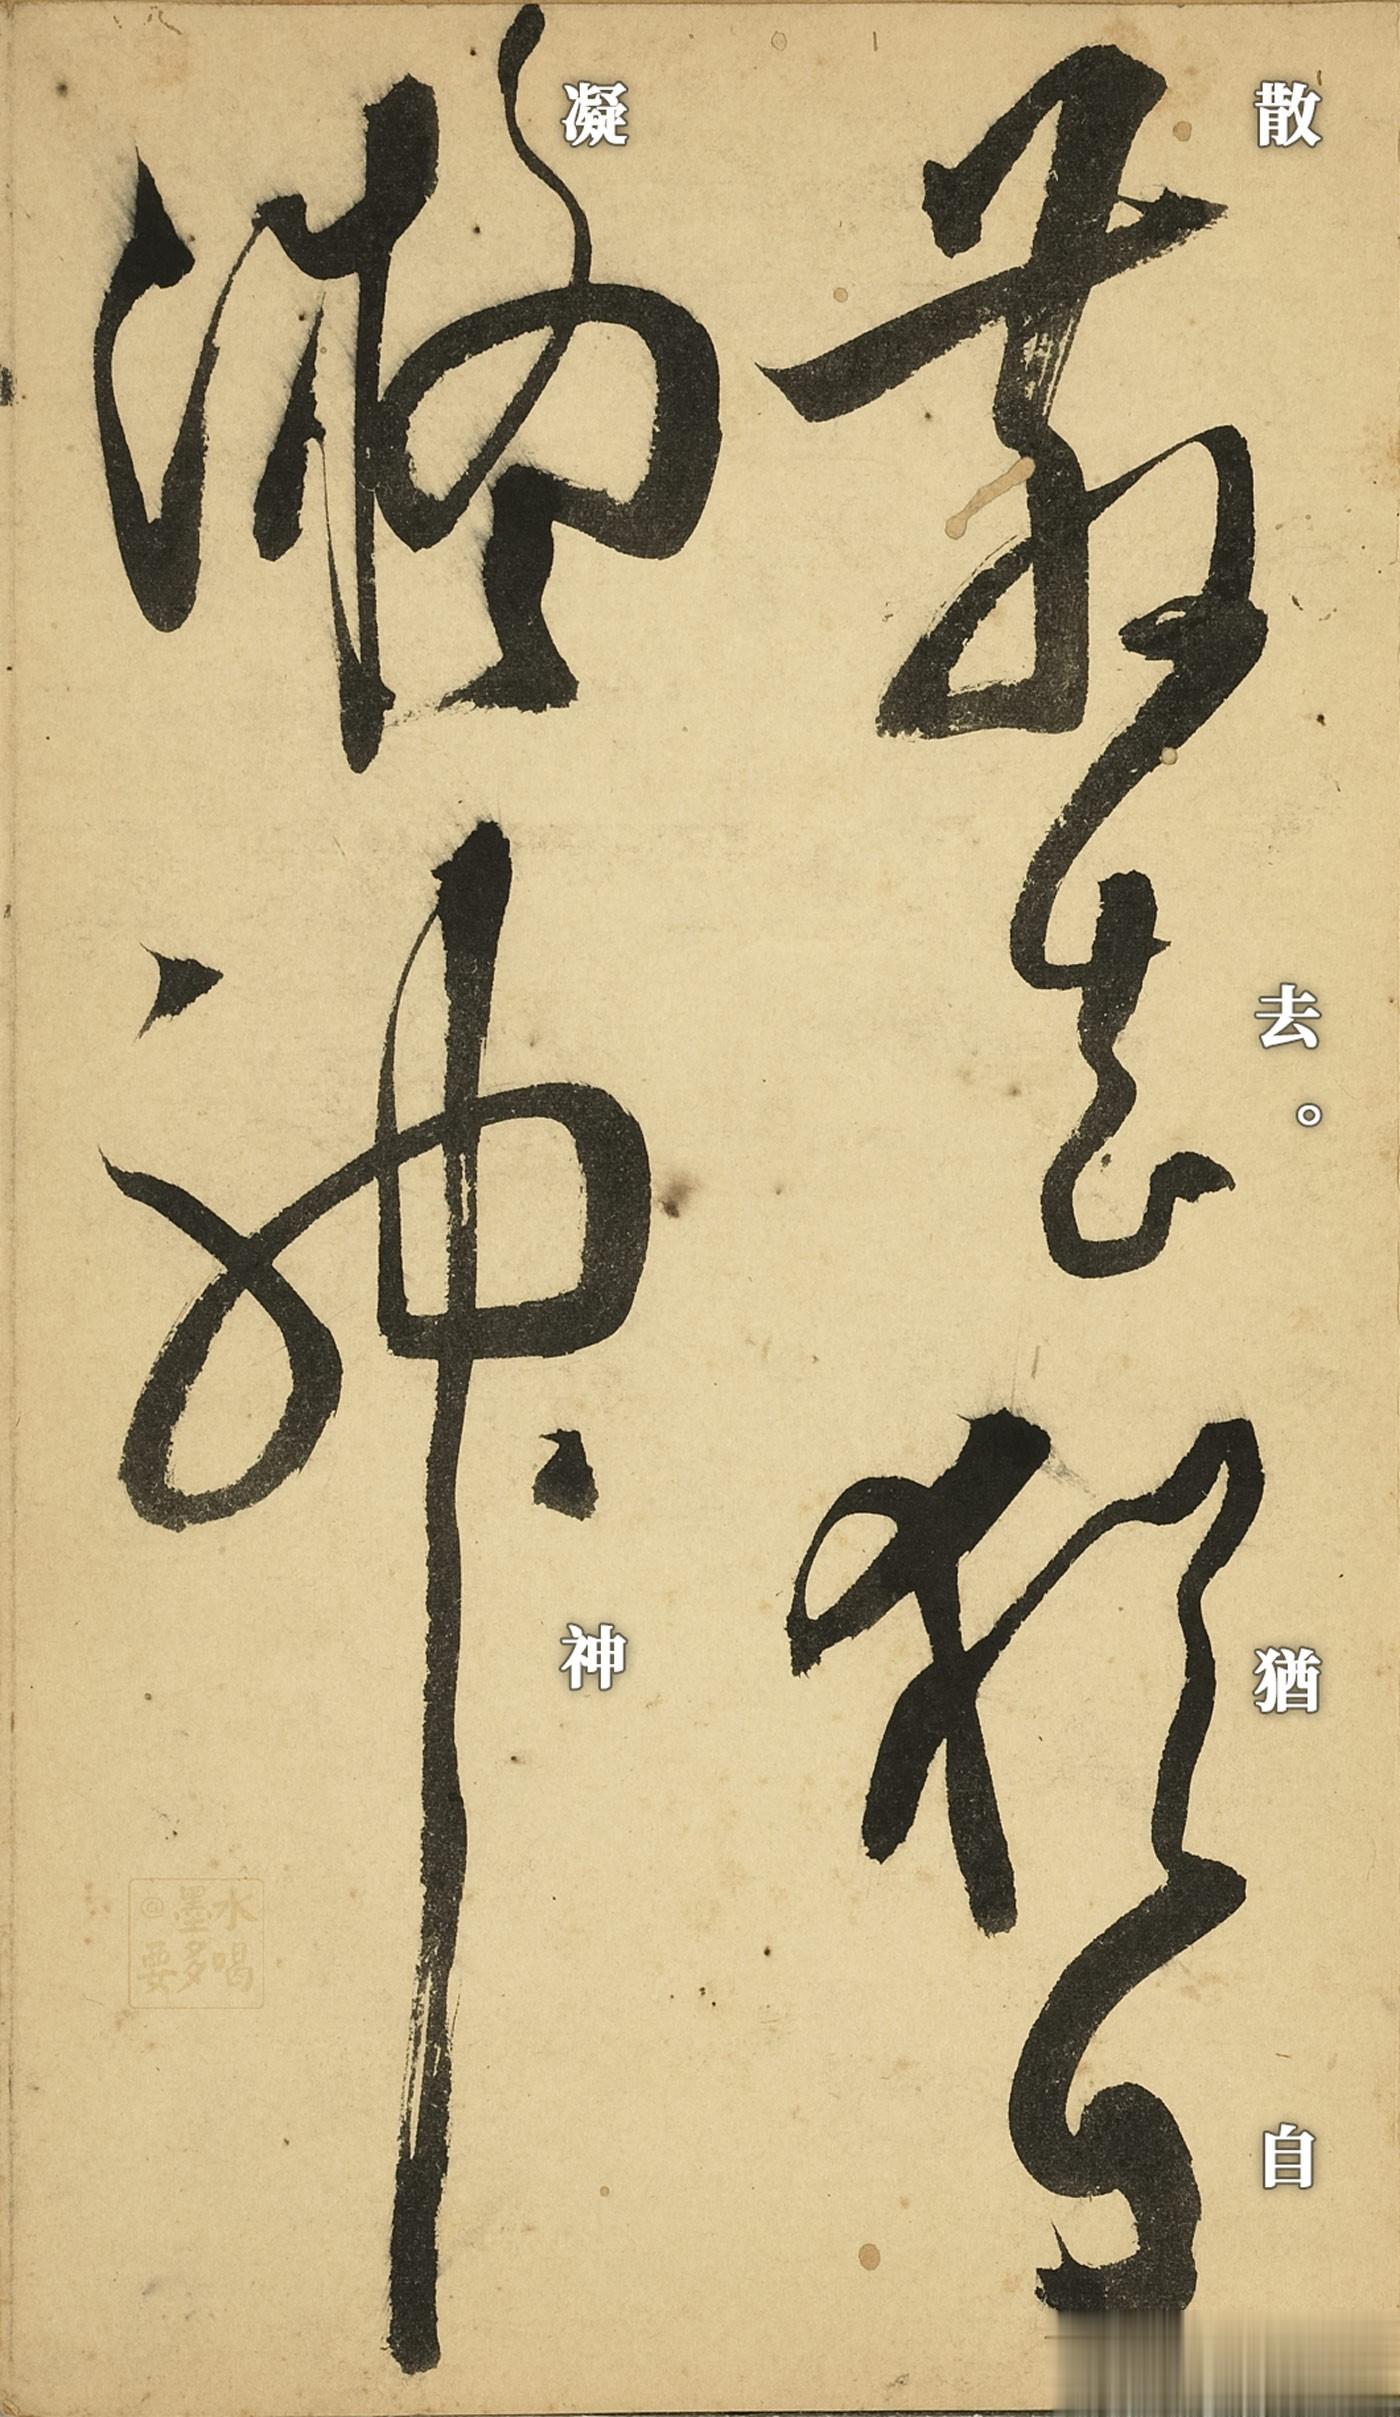 散去。猶自
凝神
@墨水
要多喝